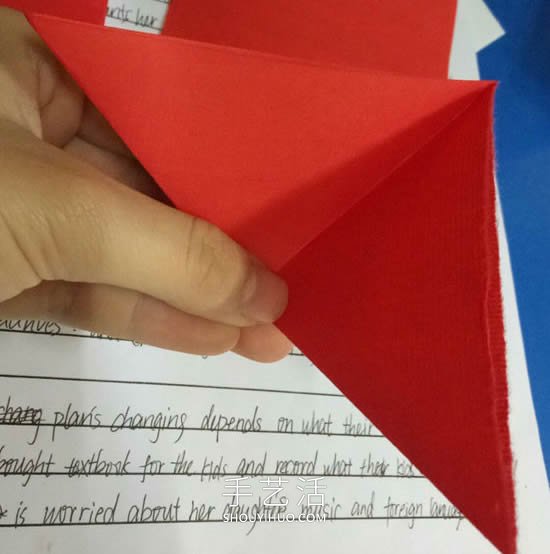 ents her
chang plan's changing depends on what their
bought textbook for the kids and record what their kids
is worried about her daughter's music and foreign language
手艺活
SHOUYIHUO.COM